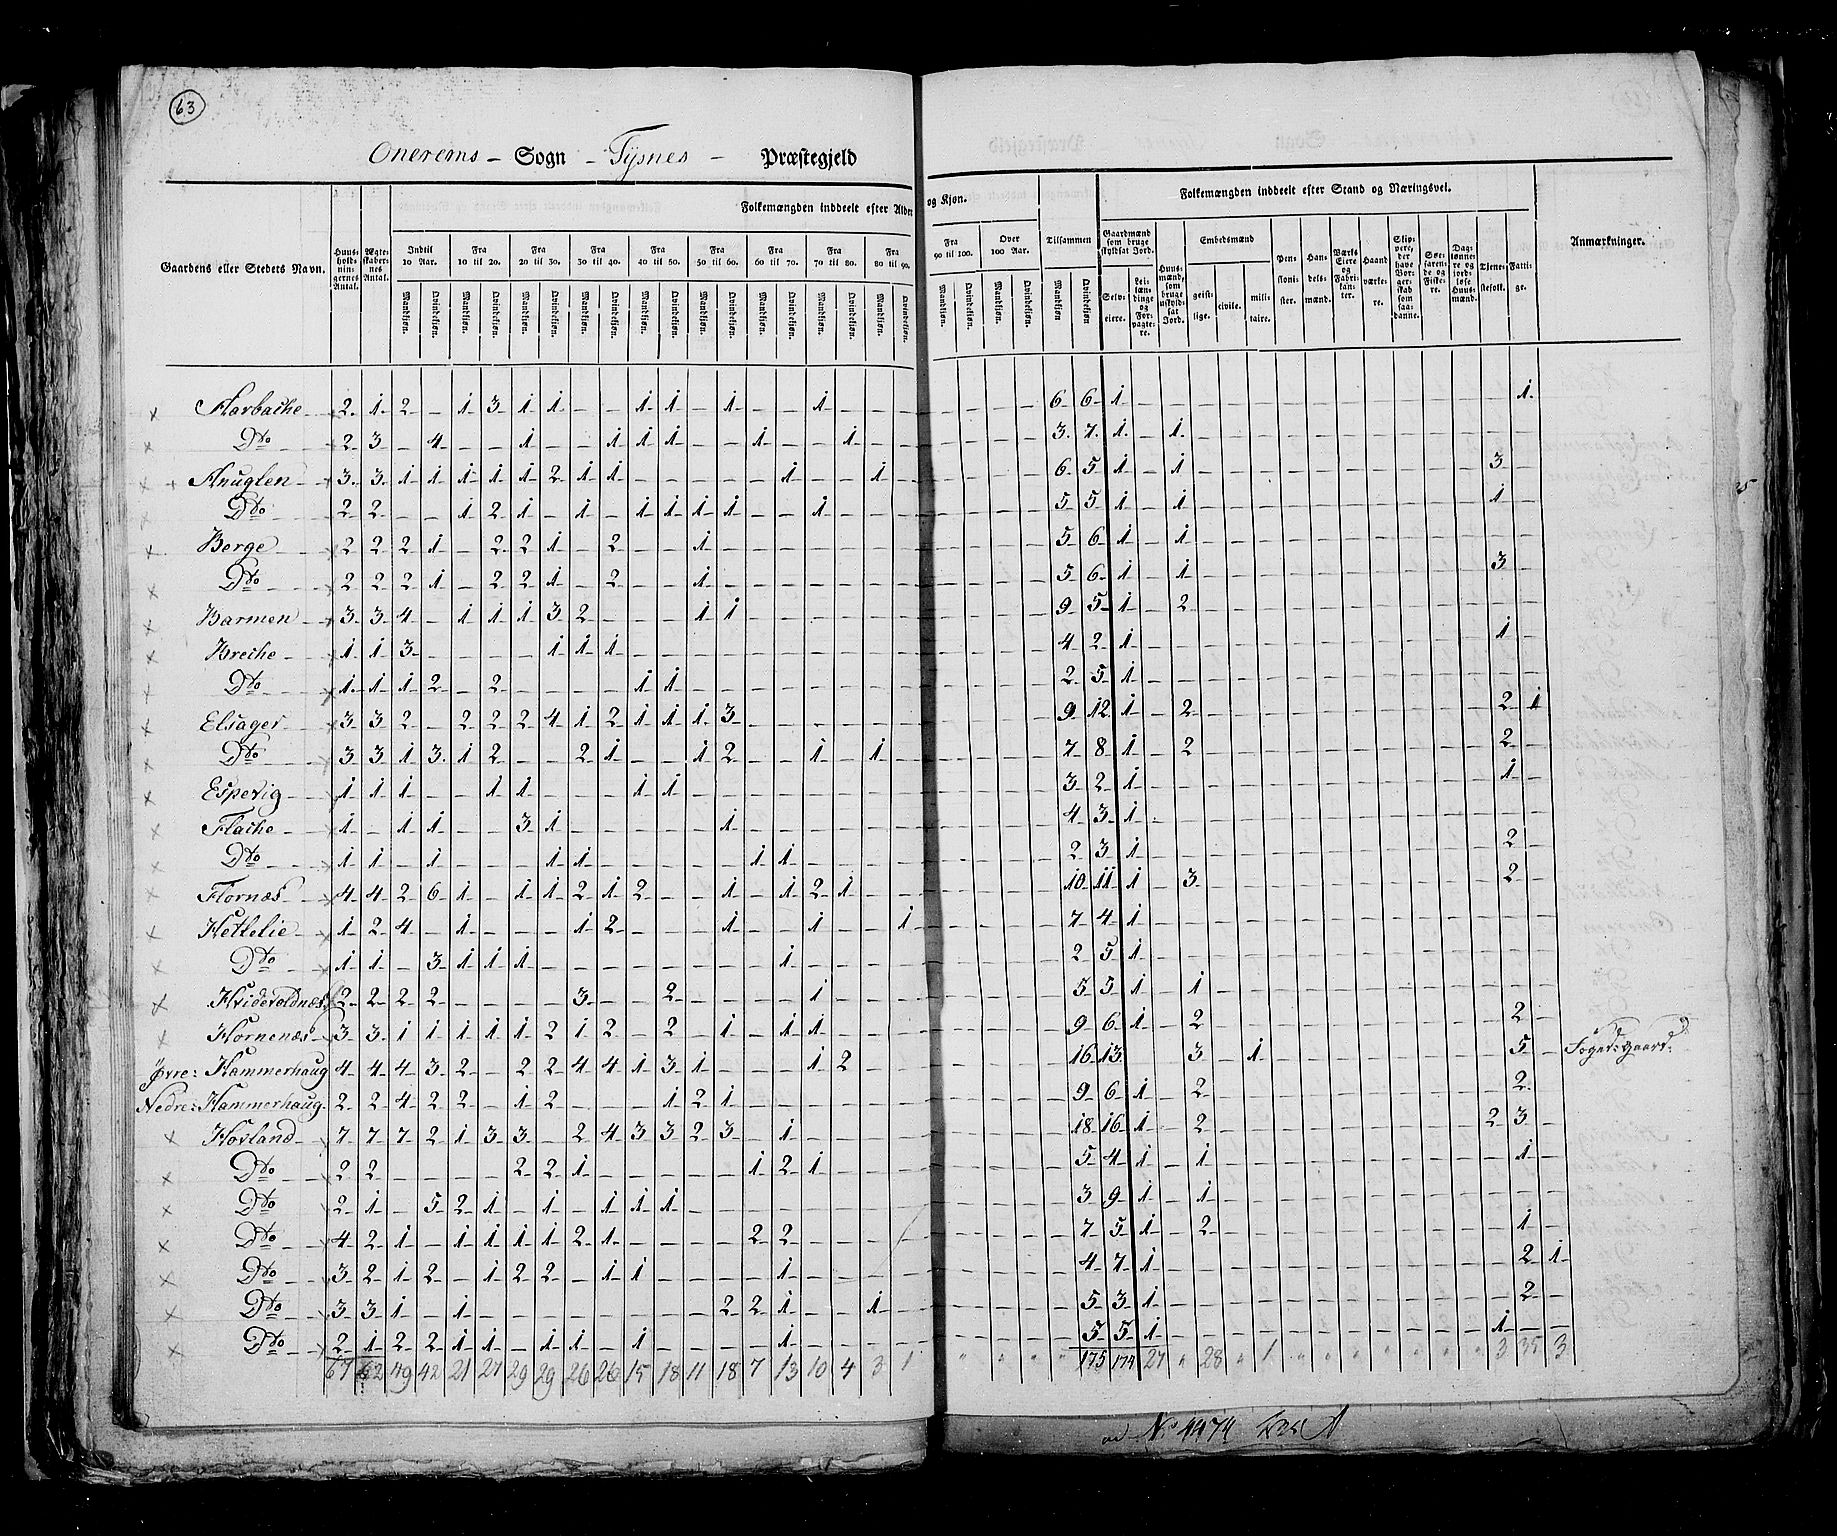 63
Onerems - Sogn - Tysnes - Præstegjeld
Folkemængden inddeelt efter Alder og Kjøn.
Folkemængden inddeelt efter Stand og Næringsvei.
Gaardens eller Stedets Navn.
Huusholdningernes Antal.
Ægteskabernes Antal.
Indtil 10 Aar. Fra 10 til 20. Fra 20 til 30. Fra 30 til 40. Fra 40 til 50. Fra 50 til 60. Fra 60 til 70. Fra 70 til 80. Fra 80 til 90. Fra 90 til 100. Over 100 Aar. Tilsammen
Mandkjøn. Qvindekjøn.
Gaardmænd som bruge skyldsat Jord. Selveiere. Leilændinge og Forpagtere.
Huusmænd, som bruge uskyldsat Jord.
Embedsmænd geistlige. civile. militaire.
Pensionister.
Handelsmænd.
Værks Eiere og Fabrikanter.
Haandværkere.
Skippere, der have Borgerskab som saadanne.
Søefarende og Fiskere.
Daglønnere og jordløse Huusmænd.
Tjenestefolk.
Fattige.
Anmærkninger.
2 1 2 - 1 3 1 1 - - 1 1 - 1 - - 1 - - - - - - - 6 6 1 - - - - - - - - - - - - - 1
Dto 2 3 - 4 - - 1 - - 1 1 1 - - 1 - - 1 - - - - - - 3 7 1 - 1
3 3 1 1 1 1 1 2 1 1 - - - - - 1 - - 1 - - - - - 6 5 1 - 1 - - - - - - - - - - 3 -
Dto 2 2 - - 1 2 1 - 1 - 1 1 1 1 - - 1 - - - - - - - 5 5 1 - 1 - - - - - - - - - - 1 -
Berge 2 2 2 1 - 2 2 1 - 2 - - 1 - - - - - - - - - - - 5 6 1 - 1
Dto 2 2 2 1 - 2 2 1 - 2 - - 1 - - - - - - - - - - - 5 6 1 - 1 - - - - - - - - - - 3 -
Barmen 3 3 4 - 1 1 1 3 2 - - - 1 1 - - - - - - - - - - 9 5 1 - 2
1 1 3 - - - - 1 1 1 - - - - - - - - - - - - - - 4 2 1 - - - - - - - - - - - - 1 -
Dto 1 1 1 2 - 2 - - - - 1 1 - - - - - - - - - - - - 2 5 1
Elsager 3 3 2 - 2 2 2 4 1 2 1 1 1 3 - - - - - - - - - - 9 12 1 - 2 - - - - - - - - - - 2 1
Dto 3 3 1 3 1 2 - - 2 1 - - 1 2 - - 1 - 1 - - - - - 7 8 1 - 2 - - - - - - - - - - 2 -
Espevig 1 1 1 - - 1 1 - - - 1 1 - - - - - - - - - - - - 3 2 1 - - - - - - - - - - - - 1 -
Flache 1 - 1 1 - - 3 1 - - - - - 1 - - - - - - - - - - 4 3 1
Dto 1 1 - 1 - - - 1 1 - - - - - 1 1 - - - - - - - - 2 3 1 - - - - - - - - - - - - 2 -
Flornæs 4 4 2 6 1 - 1 1 2 1 2 - - 1 - 1 2 1 - - - - - - 10 11 1 - 3 - - - - - - - - - - 2 -
Hetlelie 1 2 4 - 1 - - - 1 2 - - - 1 - - 1 - - 1 - - - - 7 4 1
Dto 1 1 - 3 1 1 1 - - - - - - - - 1 - - - - - - - - 2 5 1
Hvidevoldnæs 2 2 2 2 - - - - 3 - - 2 - - - - 1 - - - - - - - 5 5 1 - 1
Hornenæs 3 3 1 1 1 1 1 2 1 2 - 2 - 1 - 1 1 - - - - - - - 9 6 1 - 2 - - - - - - - - - - 2 -
Øvre: Hammerhaug 4 4 4 3 2 - 2 2 4 4 1 3 1 - - - 1 2 - - - - - - 16 13 3 - 1 - - - - - - - - 5 - Fogedsgaard
Nedre: Hammerhaug 2 2 4 2 2 - 1 2 - - - 1 2 1 - - - - - - - - - - 9 6 1 - 2 - - - - - - - - - - 2 -
Hovland 7 7 7 2 1 3 3 - 2 4 3 3 2 3 - 1 - - - - - - - - 18 16 1 - 2 - - - - - - - - - 2 3 -
Dto 2 2 - - - - 2 2 1 - - - - - 1 2 1 - - - - - - - 5 4 1 - 1 - - - - - - - - - - 1 -
Dto 2 1 - 5 2 1 - 1 - 1 1 1 - - - - - - - - - - - - 3 9 1 - 1
Dto 4 2 1 - 1 1 1 1 2 1 - - - - 2 2 - - - - - - - - 7 5 1 - 2 - - - - - - - - - - 1 -
Dto 3 2 1 2 - 1 2 2 - 1 1 - - - - 1 - - - - - - - - 4 7 1 - - - - - - - - - - - - 2 1
Dto 3 3 1 - 1 - - - - - - - - 2 2 1 - - 1 - - - - - 5 3 1 - - - - - - - - - - - - 2 -
Dto 2 1 2 2 1 1 - 1 1 - 1 - - - - 1 - - - - - - - - 5 5 1 - - - - - - - - - - - 1 - -
67 62 49 42 21 27 29 29 26 26 15 18 11 18 7 13 10 4 3 1 " " " " 175 174 27 " 28 " 1 " " " " " " " 3 35 3
No 4474